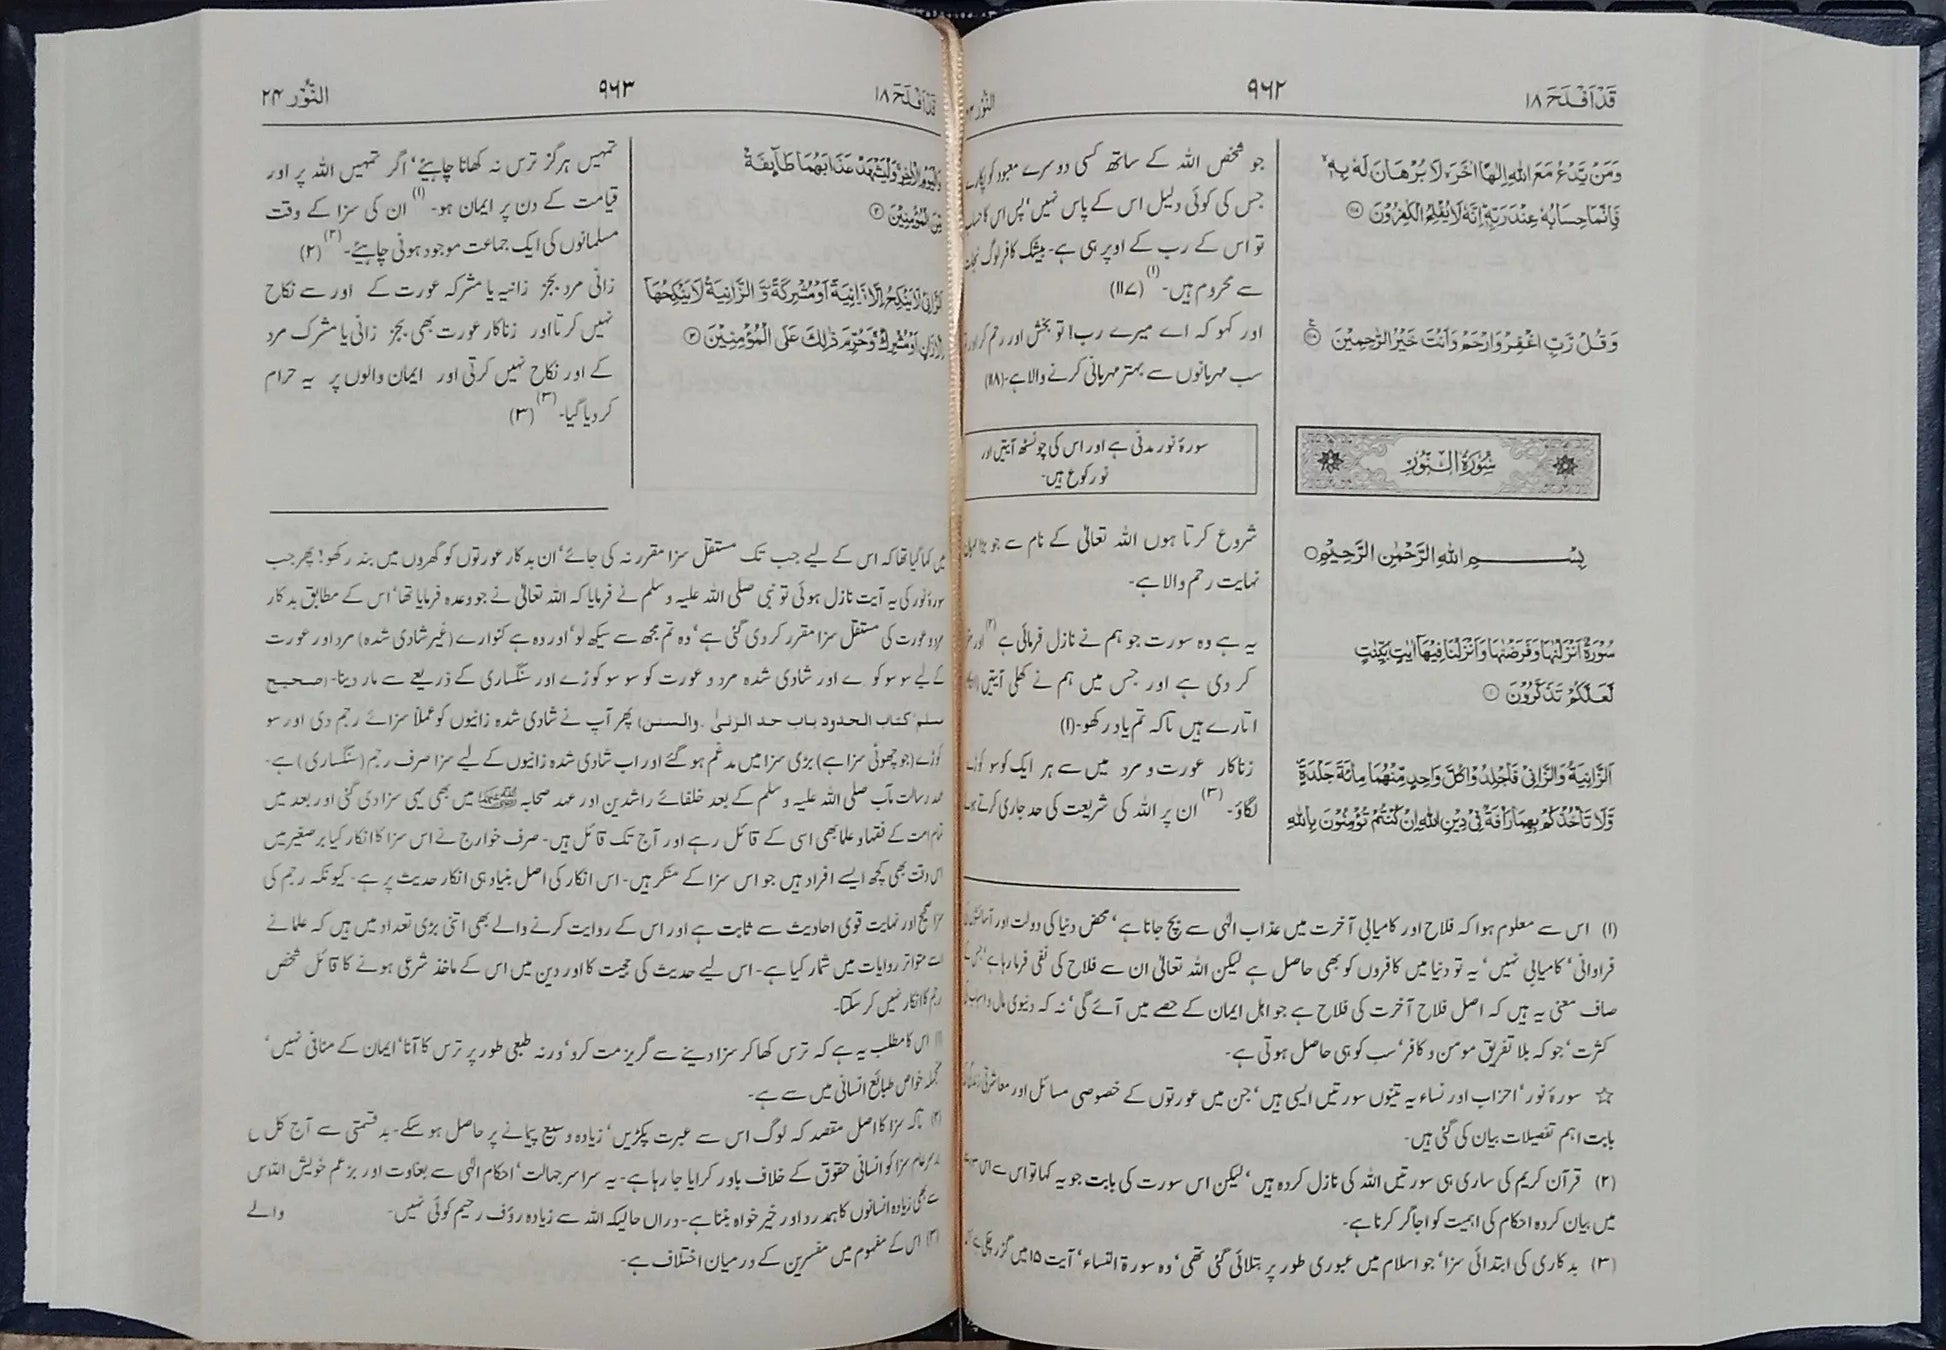 قَدْ اَفْلَحَ ۱۸
۹۶۲
النُّوْر
وَمَنْ يَّدْعُ مَعَ اللّٰهِ اِلٰهًا اٰخَرَ لَا بُرْهَانَ لَهٗ بِهٖ
فَاِنَّمَا حِسَابُهٗ عِنْدَ رَبِّهٖ اِنَّهٗ لَا يُفْلِحُ الْكٰفِرُوْنَ
وَقُلْ رَّبِّ اغْفِرْ وَارْحَمْ وَاَنْتَ خَيْرُ الرّٰحِمِيْنَ
سُوْرَةُ النُّوْرِ
بِسْمِ اللّٰهِ الرَّحْمٰنِ الرَّحِيْمِ
سُوْرَةٌ اَنْزَلْنٰهَا وَفَرَضْنٰهَا وَاَنْزَلْنَا فِيْهَا اٰيٰتٍ بَيِّنٰتٍ
لَّعَلَّكُمْ تَذَكَّرُوْنَ ۱
اَلزَّانِيَةُ وَالزَّانِيْ فَاجْلِدُوْا كُلَّ وَاحِدٍ مِّنْهُمَا مِائَةَ جَلْدَةٍ
وَّلَا تَاْخُذْكُمْ بِهِمَا رَاْفَةٌ فِيْ دِيْنِ اللّٰهِ اِنْ كُنْتُمْ تُؤْمِنُوْنَ بِاللّٰهِ
جو شخص اللہ کے ساتھ کسی دوسرے معبود کو پکارے
جس کی کوئی دلیل اس کے پاس نہیں‘ پس اس کا حساب
تو اس کے رب کے اوپر ہی ہے۔ بیشک کافر لوگ نجات
سے محروم ہیں۔(۱) (۱۱۷)
اور کہو کہ اے میرے رب! تو بخش اور رحم کر اور
سب مہربانوں سے بہتر مہربانی کرنے والا ہے۔(۱۱۸)
سورۂ نور مدنی ہے اور اس کی چونسٹھ آیتیں اور
نو رکوع ہیں۔
شروع کرتا ہوں اللہ تعالیٰ کے نام سے جو بڑا مہربان
نہایت رحم والا ہے۔
یہ ہے وہ سورت جو ہم نے نازل فرمائی ہے(۲) اور
کر دی ہے اور جس میں ہم نے کھلی آیتیں
اتارے ہیں تاکہ تم یاد رکھو۔(۱)
زناکار عورت و مرد میں سے ہر ایک کو سو کوڑے
لگاؤ۔(۳) ان پر اللہ کی شریعت کی حد جاری کرتے ہوئے
(۱) اس سے معلوم ہوا کہ فلاح اور کامیابی آخرت میں عذاب الٰہی سے بچ جانا ہے‘ محض دنیا کی دولت اور
فراوانی‘ کامیابی نہیں‘ یہ تو دنیا میں کافروں کو بھی حاصل ہے لیکن اللہ تعالیٰ ان سے فلاح کی نفی فرما رہا ہے‘
صاف معنی یہ ہیں کہ اصل فلاح آخرت کی فلاح ہے جو اہل ایمان کے حصے میں آئے گی‘ نہ کہ دنیوی مال و اسباب
کثرت‘ جو کہ بلا تفریق مومن و کافر‘ سب کو ہی حاصل ہوتی ہے۔
☆ سورۂ نور‘ احزاب اور نساء یہ تینوں سورتیں ایسی ہیں‘ جن میں عورتوں کے خصوصی مسائل اور معاشرتی
بابت اہم تفصیلات بیان کی گئی ہیں۔
(۲) قرآن کریم کی ساری ہی سورتیں اللہ کی نازل کردہ ہیں‘ لیکن اس سورت کی بابت جو یہ کہا تو اس سے اس
میں بیان کردہ احکام کی اہمیت کو اجاگر کرنا ہے۔
(۳) بدکاری کی ابتدائی سزا‘ جو اسلام میں عبوری طور پر بتلائی گئی تھی‘ وہ سورۃ النساء‘ آیت ۱۵ میں گزر چکی ہے
قَدْ اَفْلَحَ ۱۸
۹۶۳
النُّوْر ۲۴
وَالْيَوْمِ الْاٰخِرِ وَلْيَشْهَدْ عَذَابَهُمَا طَآىِٕفَةٌ
مِّنَ الْمُؤْمِنِيْنَ ۲
اَلزَّانِيْ لَا يَنْكِحُ اِلَّا زَانِيَةً اَوْ مُشْرِكَةً وَّ الزَّانِيَةُ لَا يَنْكِحُهَا
اِلَّا زَانٍ اَوْ مُشْرِكٌ وَحُرِّمَ ذٰلِكَ عَلَى الْمُؤْمِنِيْنَ ۳
تمہیں ہرگز ترس نہ کھانا چاہیئے‘ اگر تمہیں اللہ پر اور
قیامت کے دن پر ایمان ہو۔(۱) ان کی سزا کے وقت
مسلمانوں کی ایک جماعت موجود ہونی چاہیئے۔(۲) (۲)
زانی مرد بجز زانیہ یا مشرکہ عورت کے اور سے نکاح
نہیں کرتا اور زناکار عورت بھی بجز زانی یا مشرک مرد
کے اور نکاح نہیں کرتی اور ایمان والوں پر یہ حرام
کر دیا گیا۔(۳) (۳)
میں کہا گیا تھا کہ اس کے لیے جب تک مستقل سزا مقرر نہ کی جائے‘ ان بدکار عورتوں کو گھروں میں بند رکھو! پھر جب
سورۂ نور کی یہ آیت نازل ہوئی تو نبی صلی اللہ علیہ و سلم نے فرمایا کہ اللہ تعالیٰ نے جو وعدہ فرمایا تھا‘ اس کے مطابق بدکار
مرد و عورت کی مستقل سزا مقرر کر دی گئی ہے‘ وہ تم مجھ سے سیکھ لو‘ اور وہ ہے کنوارے (غیر شادی شدہ) مرد اور عورت
کے لیے سو سو کوڑے اور شادی شدہ مرد و عورت کو سو سو کوڑے اور سنگساری کے ذریعے سے مار دینا۔ (صحیح
مسلم‘ کتاب الحدود باب حد الزنیٰ۔ والسنن) پھر آپ نے شادی شدہ زانیوں کو عملاً سزائے رجم دی اور سو
کوڑے (جو چھوٹی سزا ہے) بڑی سزا میں مدغم ہو گئے اور اب شادی شدہ زانیوں کے لیے سزا صرف رجم (سنگساری) ہے۔
عہد رسالت مآب صلی اللہ علیہ و سلم کے بعد خلفائے راشدین اور عہد صحابہ میں بھی یہی سزا دی گئی اور بعد میں
تمام امت کے فقہا و علما بھی اسی کے قائل رہے اور آج تک قائل ہیں۔ صرف خوارج نے اس سزا کا انکار کیا برصغیر میں
اس وقت بھی کچھ ایسے افراد ہیں جو اس سزا کے منکر ہیں۔ اس انکار کی اصل بنیاد ہی انکار حدیث پر ہے۔ کیونکہ رجم کی
سزا صحیح اور نہایت قوی احادیث سے ثابت ہے اور اس کے روایت کرنے والے بھی اتنی بڑی تعداد میں ہیں کہ علما نے
اسے متواتر روایات میں شمار کیا ہے۔ اس لیے حدیث کی حجیت کا اور دین میں اس کے ماخذ شرعی ہونے کا قائل شخص
رجم کا انکار نہیں کر سکتا۔
(۱) اس کا مطلب یہ ہے کہ ترس کھا کر سزا دینے سے گریز مت کرو‘ ورنہ طبعی طور پر ترس کا آنا‘ ایمان کے منافی نہیں‘
منجملہ خواص طبائع انسانی میں سے ہے۔
(۲) تاکہ سزا کا اصل مقصد کہ لوگ اس سے عبرت پکڑیں‘ زیادہ وسیع پیمانے پر حاصل ہو سکے۔ بدقسمتی سے آج کل
برسرعام سزا کو انسانی حقوق کے خلاف باور کرایا جا رہا ہے۔ یہ سراسر جہالت‘ احکام الٰہی سے بغاوت اور بزعم خویش اللہ
سے بھی زیادہ انسانوں کا ہمدرد اور خیر خواہ بننا ہے۔ دراں حالیکہ اللہ سے زیادہ رؤف رحیم کوئی نہیں۔
(۳) اس کے مفہوم میں مفسرین کے درمیان اختلاف ہے۔
والے